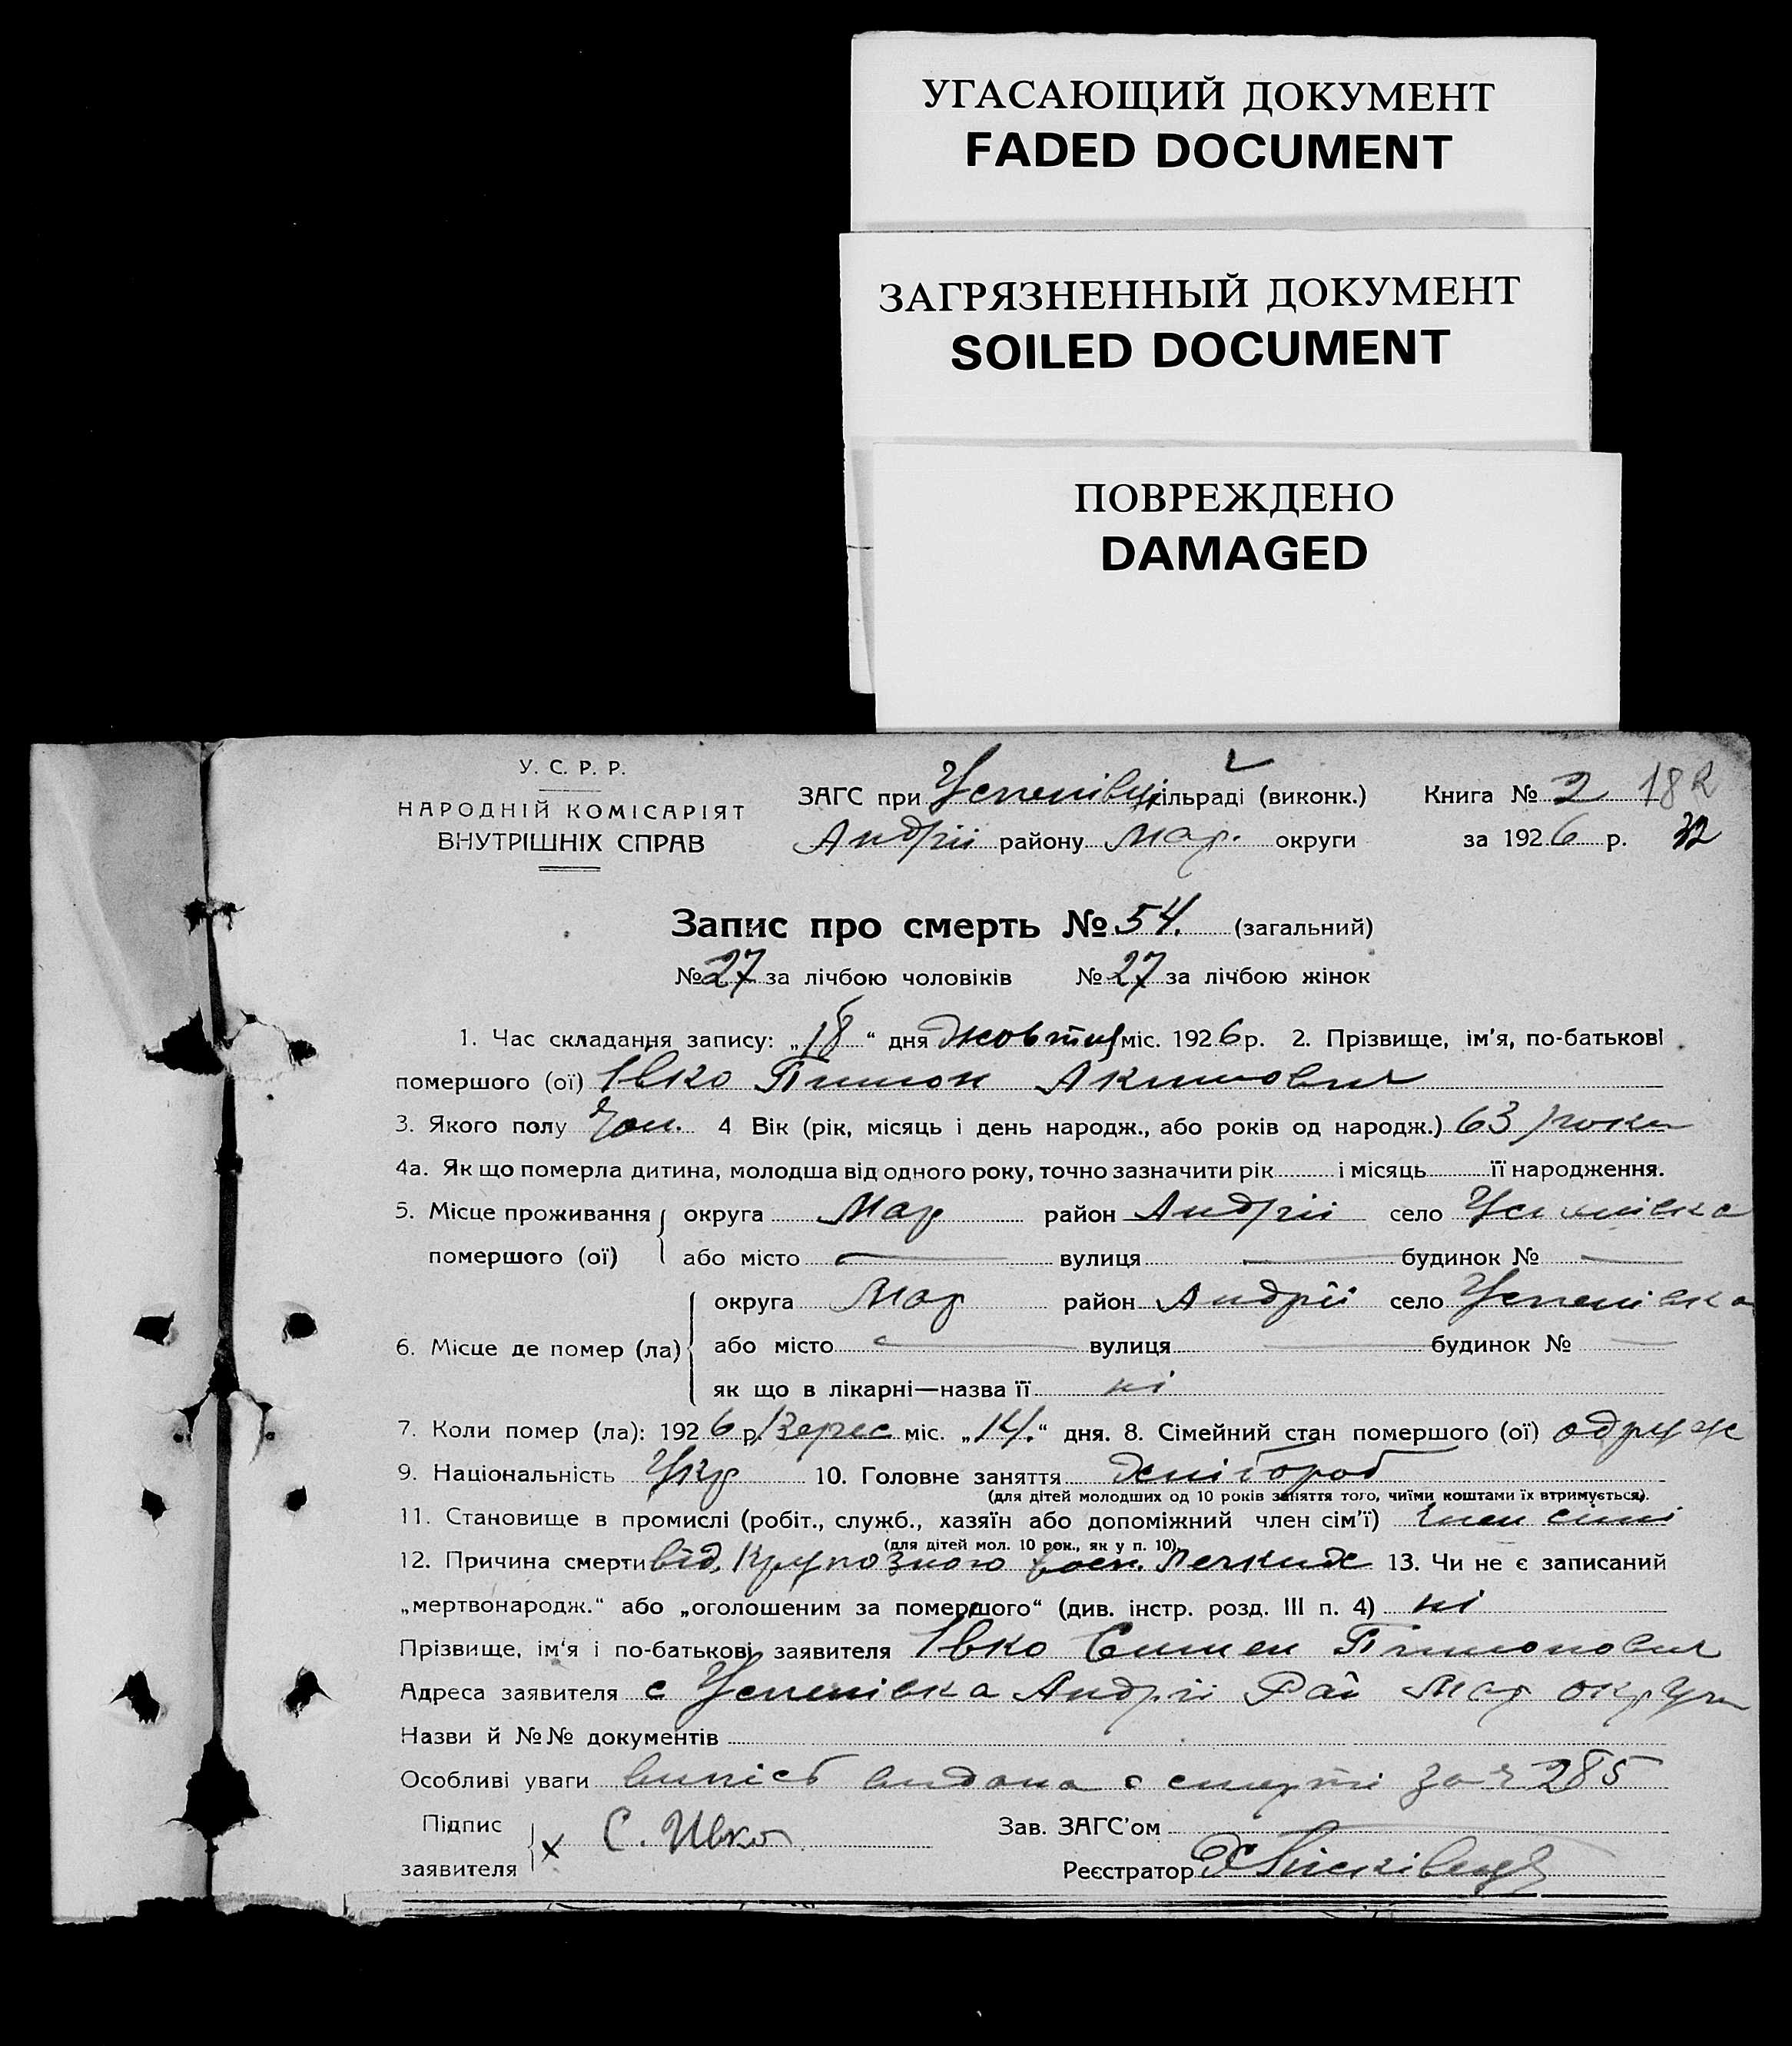 УГАСАЮЩИЙ ДОКУМЕНТ
FADED DOCUMENT
ЗАГРЯЗНЕННЫЙ ДОКУМЕНТ
SOILED DOCUMENT
ПОВРЕЖДЕНО
DAMAGED
У. С. Р. Р.
НАРОДНІЙ КОМІСАРІЯТ
ВНУТРІШНІХ СПРАВ
ЗАГС при Успенівц сільраді (виконк.)
Андрії району Мар. округи
Книга № 2 182
за 1926 р. 32
Запис про смерть № 54. (загальний)
№ 27 за лічбою чоловіків № 27 за лічбою жінок
1. Час складання запису: „18“ дня жовтня міс. 1926 р. 2. Прізвище, ім'я, по-батькові
помершого (ої) Івко Пимон Акимович
3. Якого полу Чол. 4 Вік (рік, місяць і день народж., або років од народж.) 63 роки
4а. Як що померла дитина, молодша від одного року, точно зазначити рік і місяць її народження.
5. Місце проживання помершого (ої) округа Мар район Андрії село Успенівка
або місто — вулиця — будинок № —
6. Місце де помер (ла) округа Мар район Андрії село Успенівка
або місто — вулиця — будинок № —
як що в лікарні—назва її ні
7. Коли помер (ла): 1926 р. Верес міс. „14.“ дня. 8. Сімейний стан помершого (ої) одруж
9. Національність Укр 10. Головне заняття хлібороб
(для дітей молодших од 10 років заняття того, чиїми коштами їх втримується).
11. Становище в промислі (робіт., служб., хазяїн або допоміжний член сім'ї) член сімі
(для дітей мол. 10 рок., як у п. 10).
12. Причина смерти від Крупозного восп. 13. Чи не є записаний
„мертвонародж.“ або „оголошеним за помершого“ (див. інстр. розд. III п. 4) ні
Прізвище, ім'я і по-батькові заявителя Івко Пимонович
Адреса заявителя с Успенівка Андрії Рай Мар округи
Назви й №№ документів
Особливі уваги випісь видана о смерті за № 285
Підпис заявителя х С. Ивко
Зав. ЗАГС'ом
Реєстратор